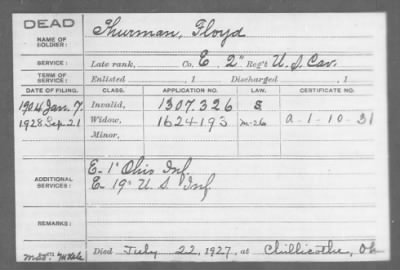 DEAD
NAME OF SOLDIER: Thurman, Floyd
SERVICE: Late rank, Co. E. 2" Reg't U.S. Cav.
TERM OF SERVICE: Enlisted , 1 Discharged , 1
DATE OF FILING. CLASS. APPLICATION NO. LAW. CERTIFICATE NO.
1904 Jan. 7. Invalid, 1307.326 S
1928 Sep 21 Widow, 1624193 M-26 a-1-10-31
Minor,
ADDITIONAL SERVICES: E. 1" Ohio Inf.
E 19" U.S. Inf.
REMARKS:
Died July 22, 1927, at Chillicothe, Oh